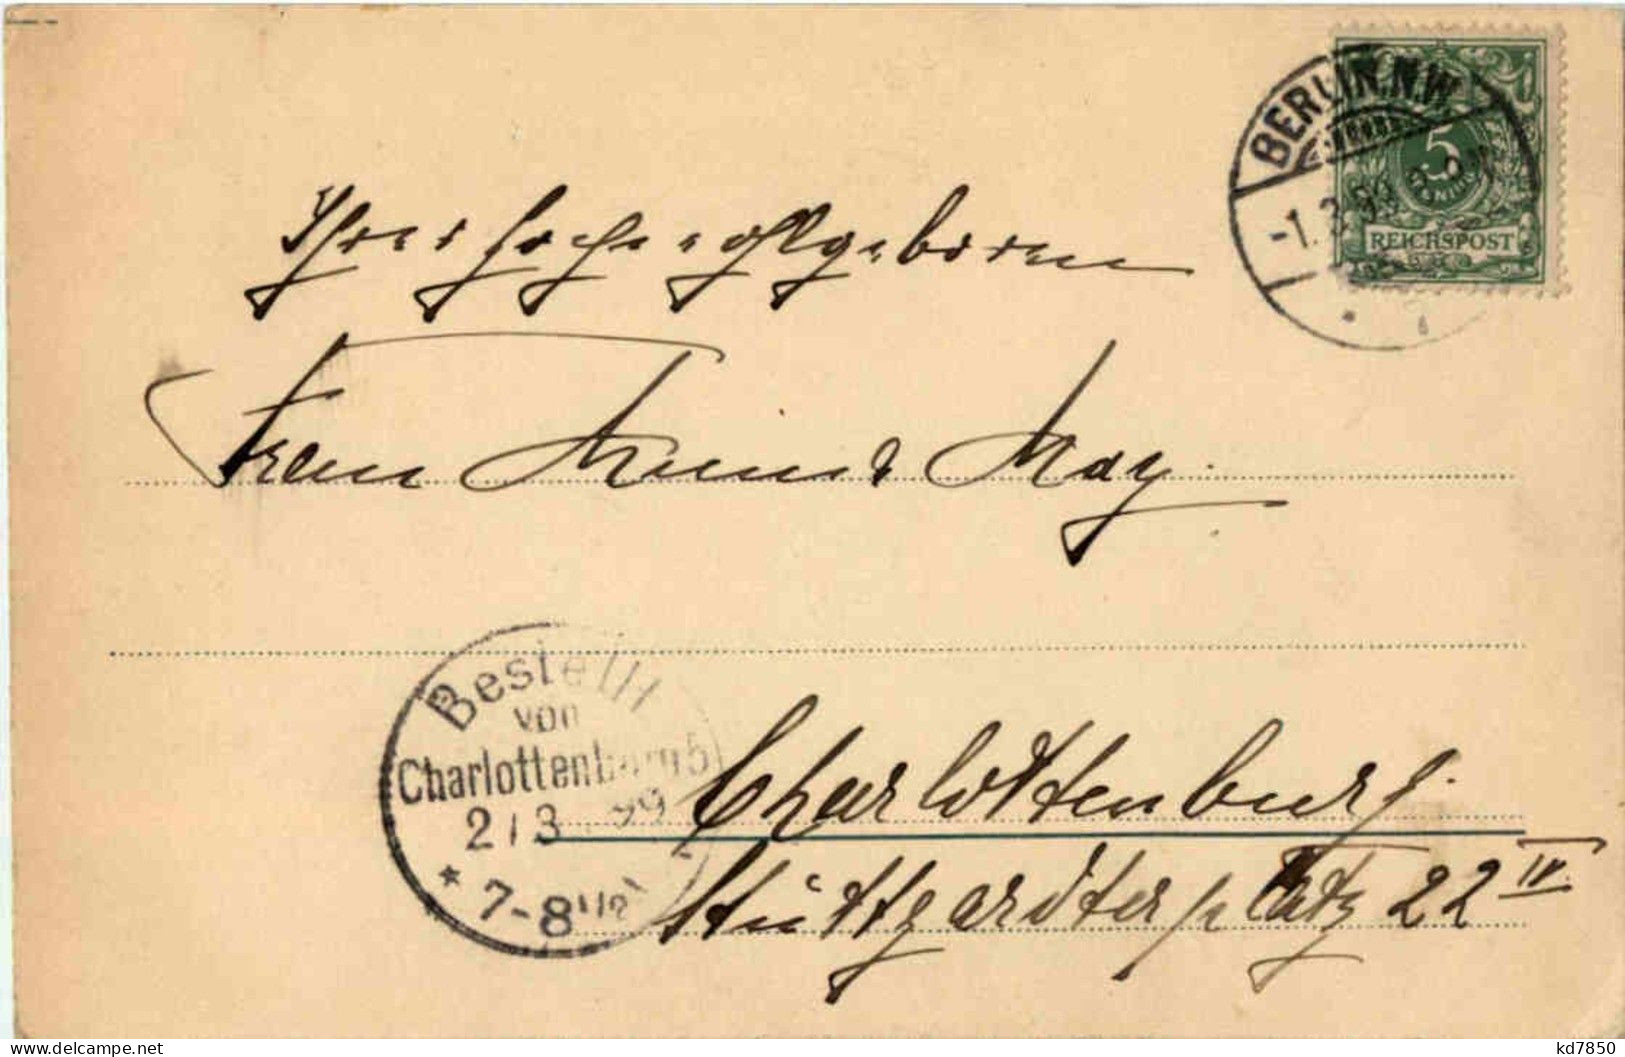 BERLIN.N.W.
-1.3.99
5
REICHSPOST
Ihrer Hochwohlgeboren
Frau May.
Bestellt
von
Charlottenburg 5
2/3 99
* 7-8 1/2
Charlottenburg.
Stuttgardterplatz 22 IV.
www.delcampe.net
kd7850